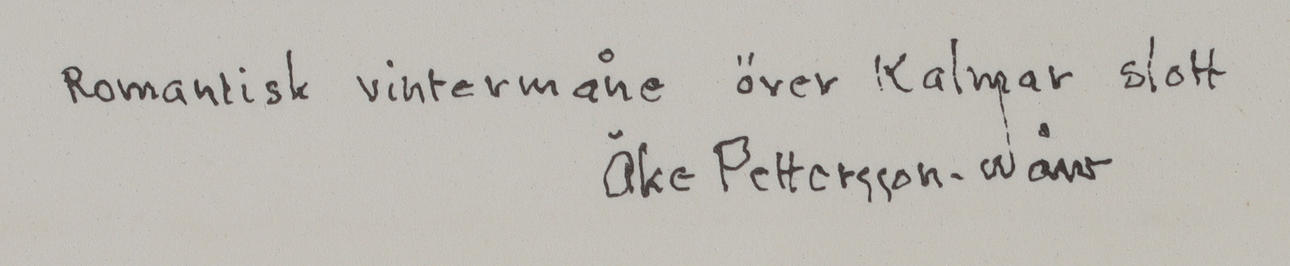 Romantisk vintermåne över Kalmar slott
Åke Pettersson-Wåw